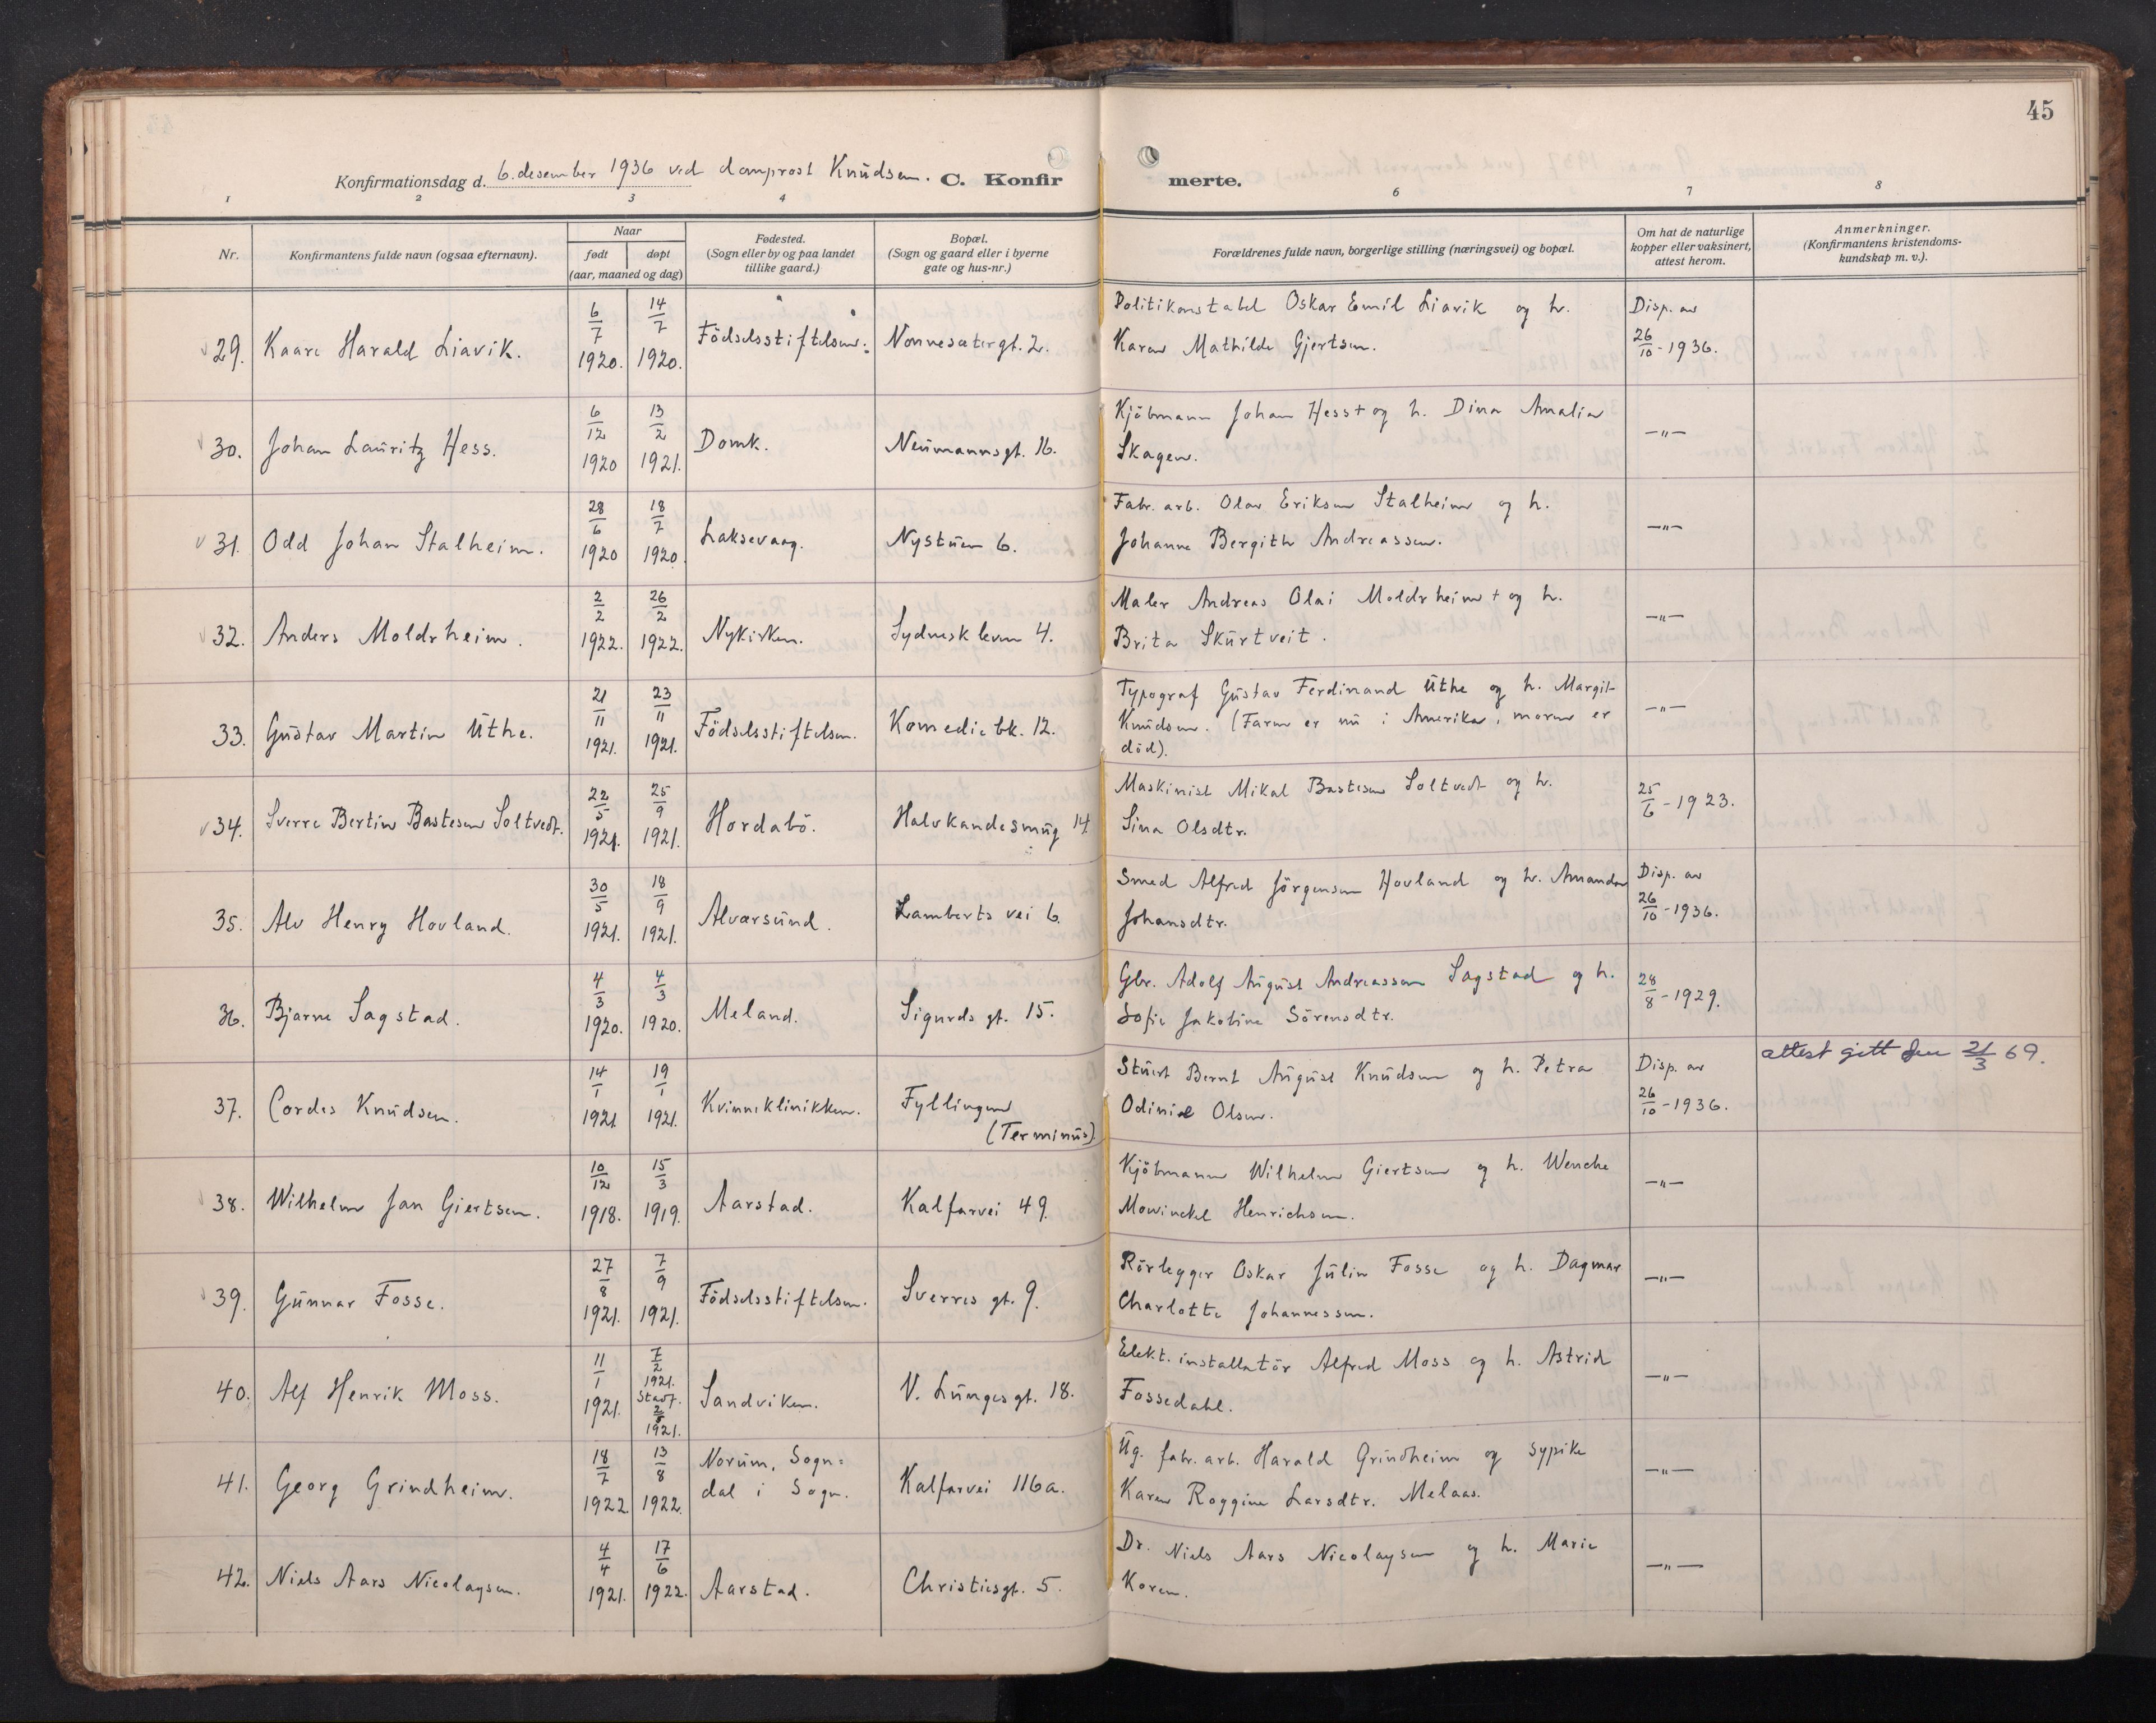 45
Konfirmationsdag d. 6. desember 1936 ved domprost Knudsen. C. Konfirmerte.
1 2 3 4 6 7 8
Nr. Konfirmantens fulde navn (ogsaa efternavn). Naar født døpt (aar, maaned og dag) Fødested. (Sogn eller by og paa landet tillike gaard.) Bopæl. (Sogn og gaard eller i byerne gate og hus-nr.) Forældrenes fulde navn, borgerlige stilling (næringsvei) og bopæl. Om hat de naturlige kopper eller vaksinert, attest herom. Anmerkninger. (Konfirmantens kristendoms-kundskap m. v.).
29. Kaare Harald Liavik. 6/7 1920. 14/7 1920. Födselsstiftelsen. Nonnesetergt. 2. Politikonstabel Oskar Emil Liavik og h. Disp. av
Karen Mathilde Gjertsen. 26/10 - 1936.
30. Johan Lauritz Hess. 6/12 1920 13/2 1921. Domk. Neumannsgt. 16. Kjöbmann Johan Hess + og h. Dina Amalia —"—
Skagen.
31. Odd Johan Stalheim. 28/6 1920 18/7 1920. Laksevaag. Nystuen 6. Fabr. arb. Olav Eriksen Stalheim og h. —"—
Johanne Bergithe Andreassen.
32. Anders Moldrheim. 2/2 1922. 26/2 1922. Nykirken. Sydnesklevn 4. Maler Andreas Olai Moldrheim + og h. —"—
Brita Skurtveit.
33. Gustav Martin Uthe. 21/11 1921. 23/11 1921. Födselsstiftelsen. Komediebk. 12. Typograf Gustav Ferdinand Uthe og h. Margit —"—
Knudsen. (Faren er nu i Amerika, moren er
död).
34. Sverre Bertin Bastesen Soltvedt. 22/5 1921. 25/9 1921. Hordabö. Halvkandesmug 14 Maskinist Mikal Bastesen Soltvedt og h. 25/6 - 1923.
Sina Olsdtr.
35. Alv Henry Hovland. 30/5 1921. 18/9 1921. Alversund. Lamberts vei 6. Smed Alfred Jörgensen Hovland og h. Amanda Disp. av
Johansdtr. 26/10 - 1936.
36. Bjarne Sagstad. 4/3 1920. 4/3 1920. Meland. Sigurds gt. 15. Gbr. Adolf August Andreassen Sagstad og h. 28/8 - 1929.
Sofie Jakobine Sörensdtr.
37. Cordes Knudsen. 14/1 1921 19/1 1921. Kvinneklinikken. Fyllingen (Terminus) Stuert Bernt August Knudsen og h. Petra Disp. av attest gitt den 21/3 69.
Odinie Olsen. 26/10 - 1936.
38. Wilhelm Jan Giertsen. 10/12 1918. 15/3 1919. Aarstad. Kalfarvei 49. Kjöbmann Wilhelm Giertsen og h. Wenche —"—
Mowinckel Henrichsen.
39. Gunnar Fosse. 27/8 1921. 7/9 1921. Födselsstiftelsen. Sverres gt. 9. Rörlegger Oskar Julin Fosse og h. Dagmar —"—
Charlotte Johannessen.
40. Alf Henrik Moss. 11/1 1921. 7/2 1921. Stadf. 2/5 1921. Sandviken. V. Lungesgt. 18. Elekt. installatör Alfred Moss og h. Astrid —"—
Fossedahl.
41. Georg Grindheim. 18/7 1922 13/8 1922. Norum, Sogn= dal i Sogn. Kalfarvei 116a. Ug. fabr. arb. Harald Grindheim og sypike —"—
Karen Roggine Larsdtr. Melaas.
42. Niels Aars Nicolaysen. 4/4 1921. 17/6 1922. Aarstad. Christiesgt. 5. Dr. Niels Aars Nicolaysen og h. Marie —"—
Koren.